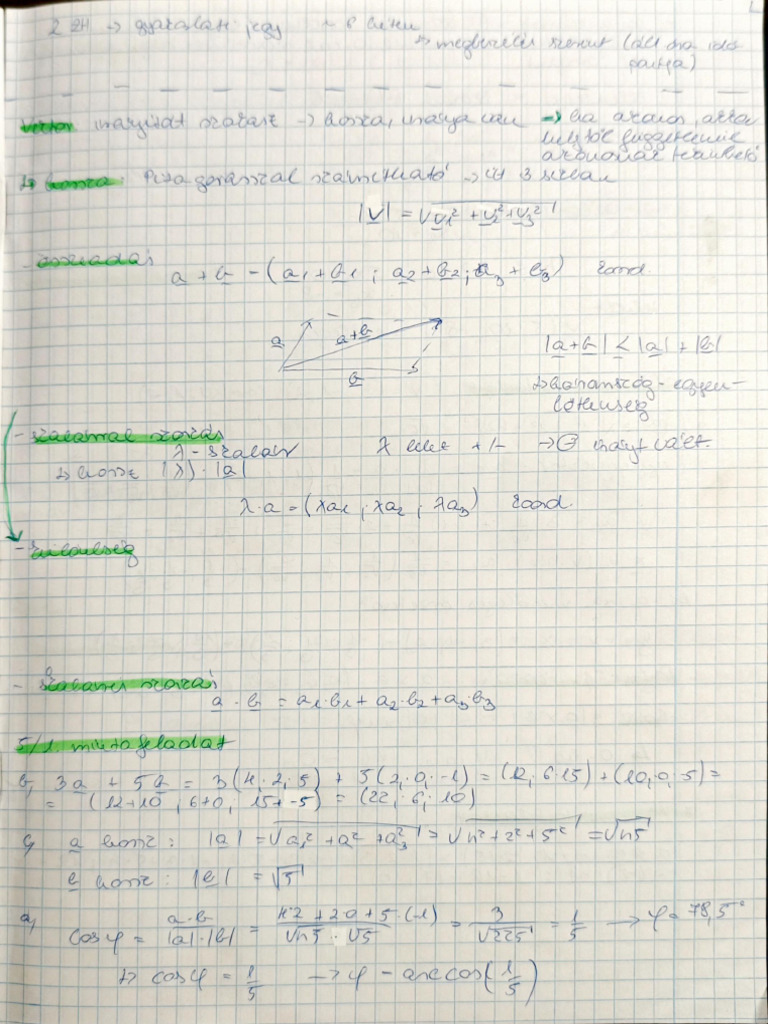 2 ZH → gyakorlati jegy ~ 8 
→ megbeszélés szerint
vektor irányított szakasz → hossza, iránya van →
↳ hossza: Pitagorasszal számítható →
|v| = √v₁² + v₂² + v₃²
- összeadás
a + b = (a₁ + b₁ ; a₂ + b₂ ; a₃ + b₃) koord.
a a+b b
|a + b| ≤ |a| + |b|
↳ háromszög-egyen-
lőtlenség
- skalárral szorzás
λ - skalár λ lehet +/- → ⊖ irányt vált.
↳ hossz |λ| · |a|
λ · a = (λa₁ ; λa₂ ; λa₃) koord.
- különbség
- skaláris szorzás
a · b = a₁·b₁ + a₂·b₂ + a₃·b₃
5/1. mintafeladat
b, 3a + 5b = 3(4; 2; 5) + 5(2; 0; -1) = (12; 6; 15) + (10; 0; -5) =
= (12+10; 6+0; 15+-5) = (22; 6; 10)
c, a hossz: |a| = √a₁² + a² + a₃² = √4² + 2² + 5² = √45
b hossz: |b| = √5
a, cos φ = a·b / |a|·|b| = 4·2 + 2·0 + 5·(-1) / √45 · √5 = 3 / √225 = 1/5 → φ = 78,5°
↳ cos φ = 1/5 → φ = arccos(1/5)